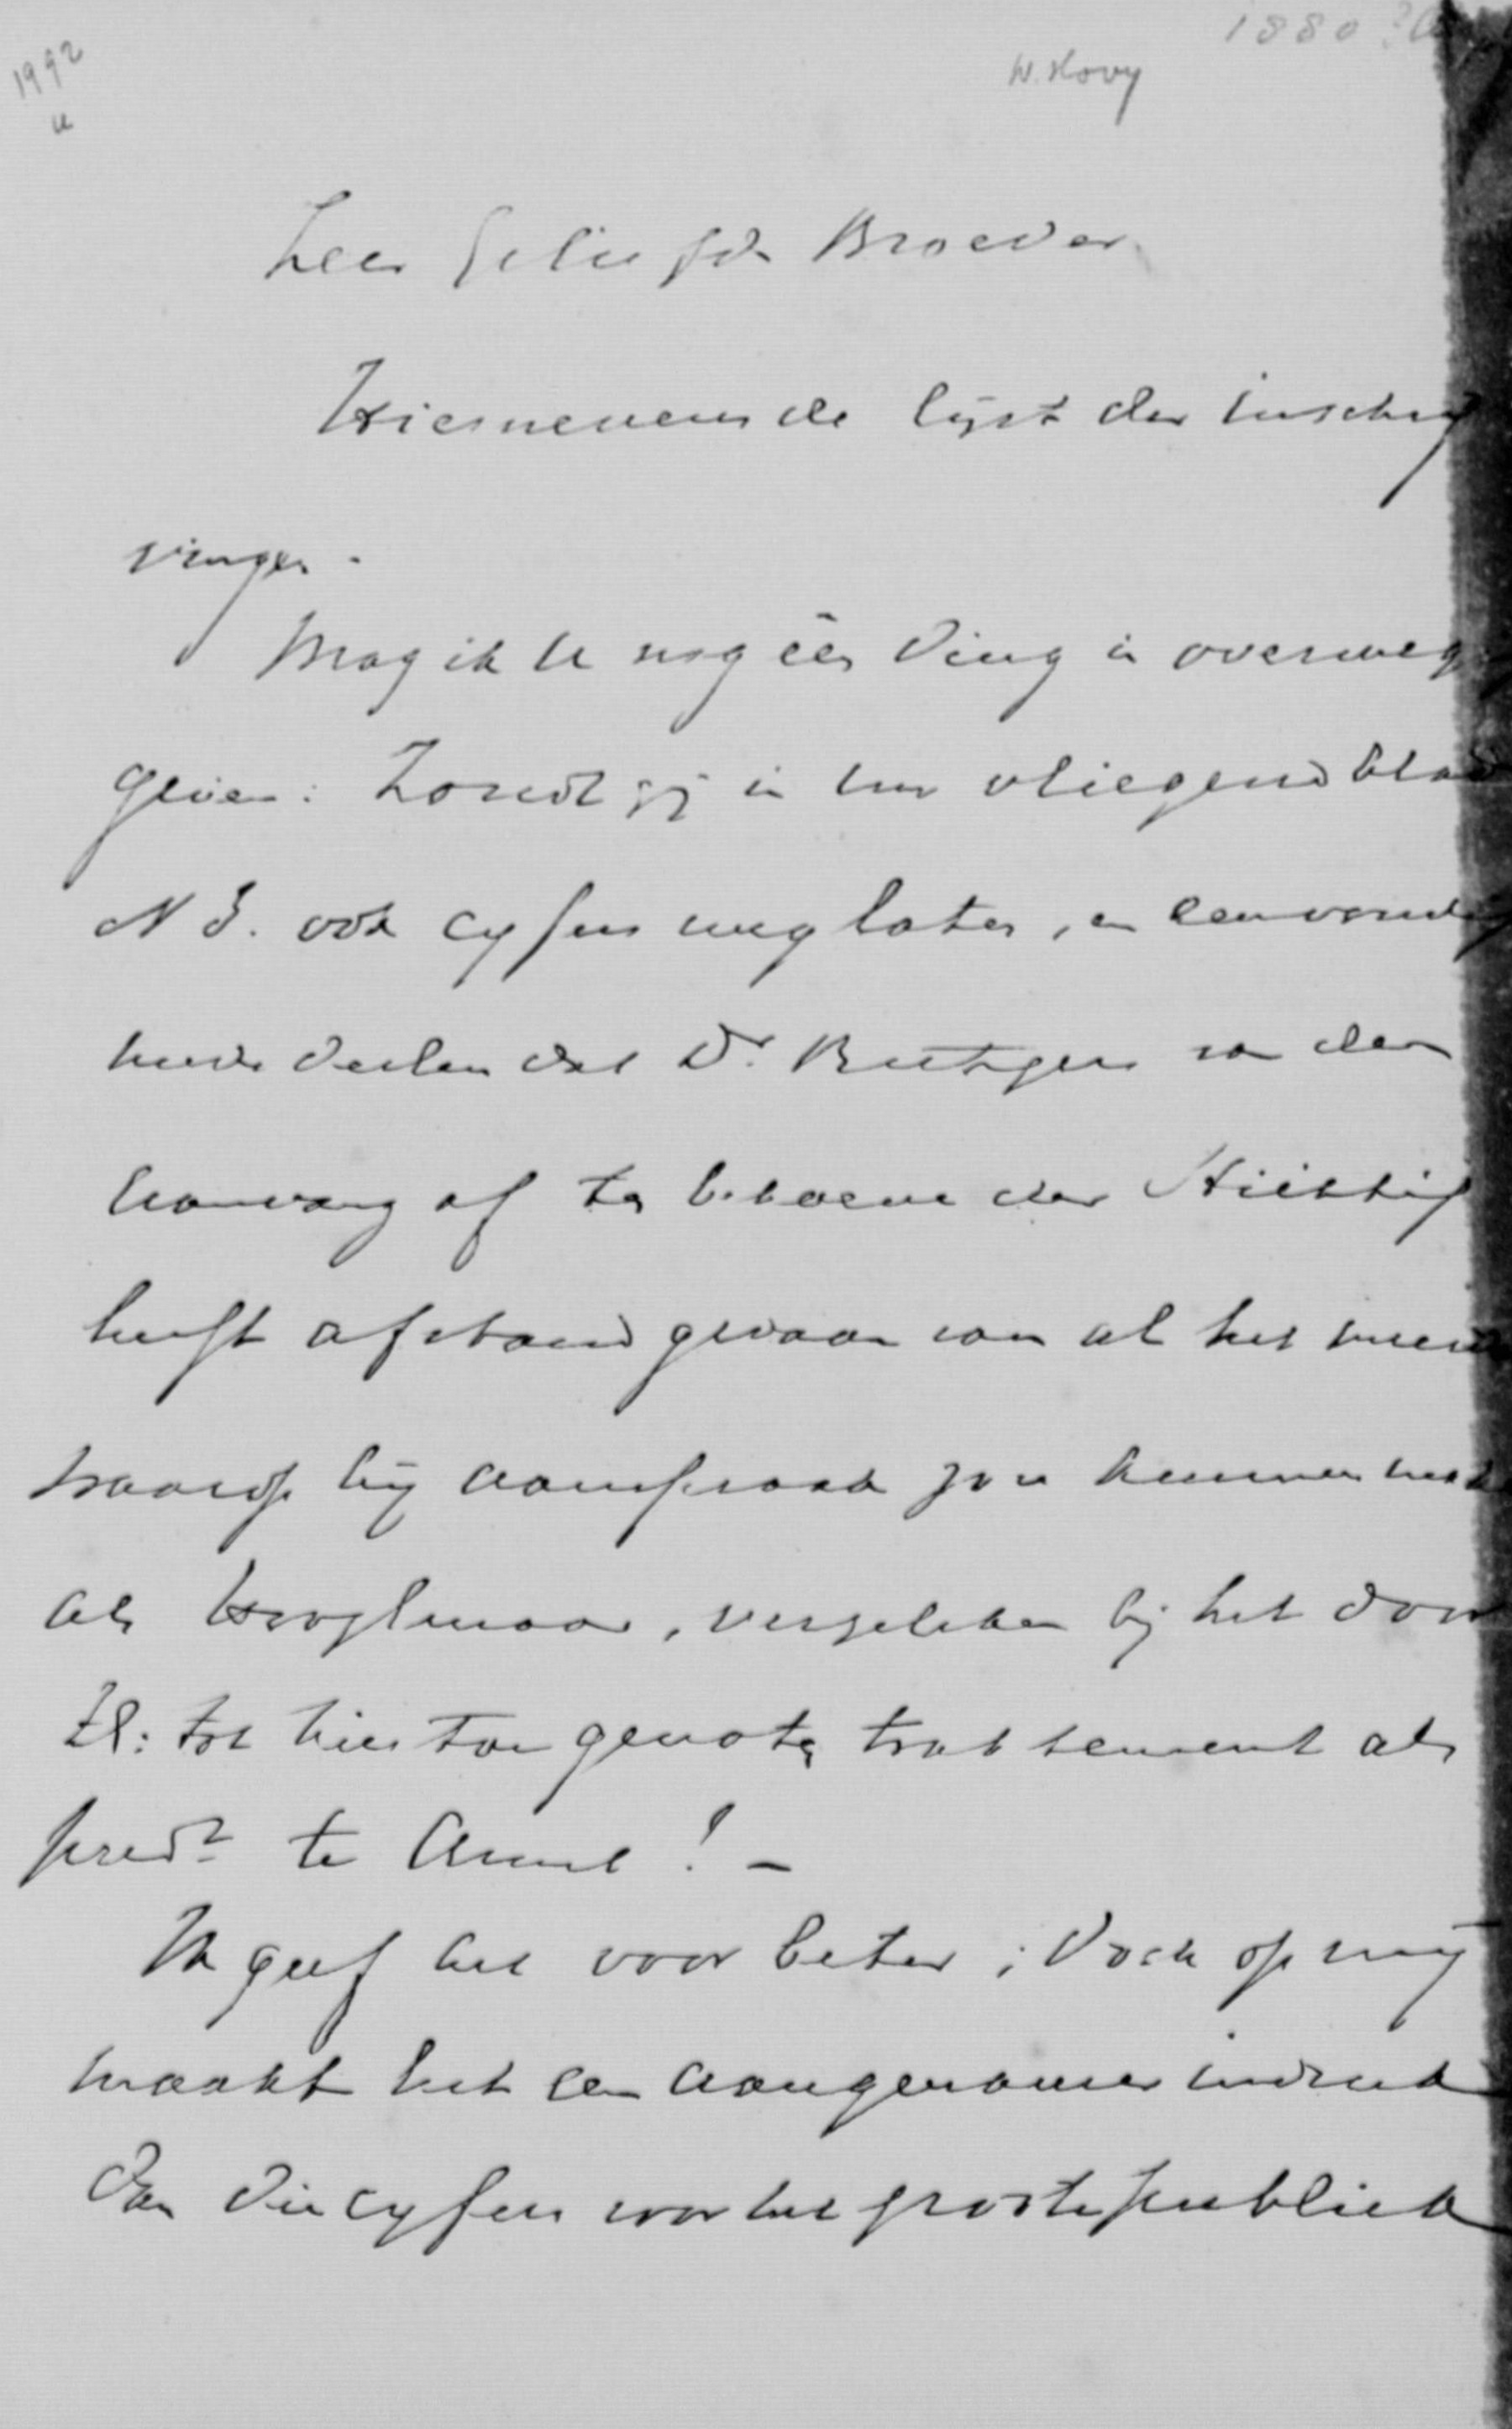 1992
u
W. Hovy
1880?
Zeer Geliefde Broeder
Hiernevens de lijst der inschrij
vingen.
Mag ik U nog één ding in overweg
geven: Zoudt gij in uw vliegend blad
N 3. ook cyfers weglaten, en eenvoudig
mede deelen dat Dr. Rutgers van den
aanvang af ten behoeve der Stichting
heeft afstand gedaan van al het meer
waarop hij aanspraak zou kunnen mak
als Hoogleeraar, vergeleken bij het door
ZE: tot hier toe genoten traktement als
predt te Amst! —
Ik geef het voor beter; doch op mij
maakt het een aangenamer indruk
dan die cyfers voor het groote publiek